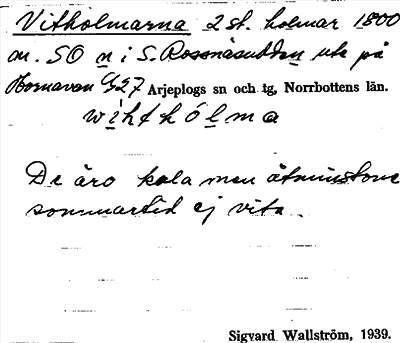 Vitholmarna 2 st. holmar 1800
m. SO n i S. Rossnäsudden ute på
Hornavan G27 Arjeplogs sn och tg, Norrbottens län.
wihthólma
De äro kala men åtminstone
sommartid ej vita.
Sigvard Wallström, 1939.